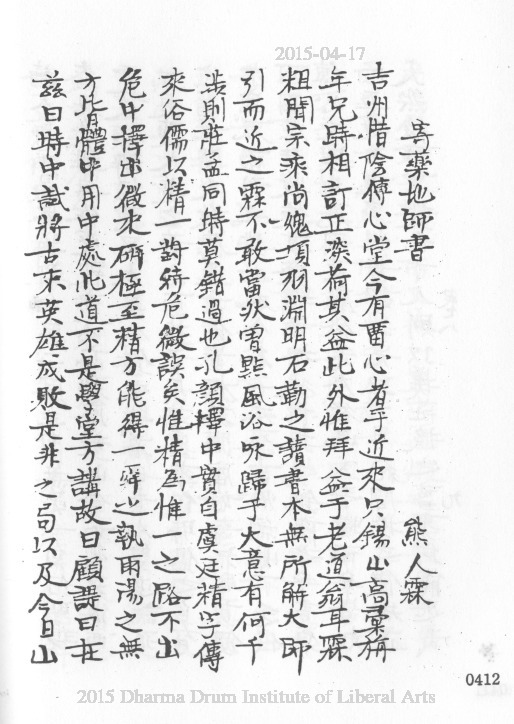 2015-04-17
寄藥地師書
熊人霖
吉州惜陰傳心堂今有留心者乎近來只錫山高彙旃
年兄時相訂正深荷其益此外惟拜益于老道翁耳霖
粗聞宗乘尚愧項羽淵明石勒之讀書本無所解大師
引而近之霖不敢當狀曾點風浴咏歸于大意有何干
涉則莊孟同時莫錯過也孔顏擇中實自虞廷精字傳
來俗儒以精一對待危微誤矣惟精為惟一之路不出
危中擇出微來研極至精方能得一舜之執兩湯之無
方皆體中用中處此道不是學堂方講故曰顧諟曰在
茲日時中試將古來英雄成敗是非之局以及今日山
0412
2015 Dharma Drum Institute of Liberal Arts